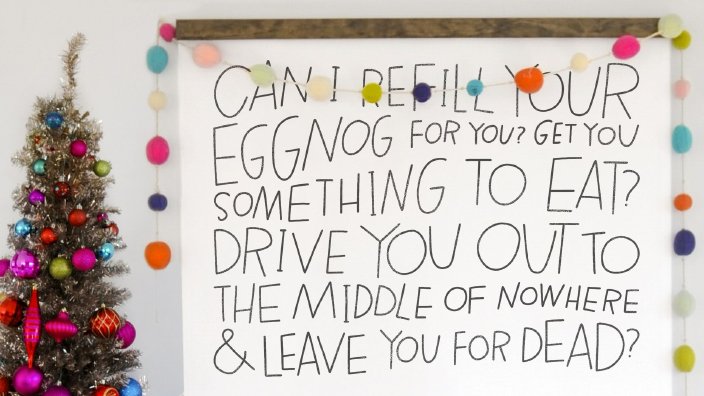 CAN I REFILL YOUR
EGGNOG FOR YOU? GET YOU
SOMETHING TO EAT?
DRIVE YOU OUT TO
THE MIDDLE OF NOWHERE
& LEAVE YOU FOR DEAD?